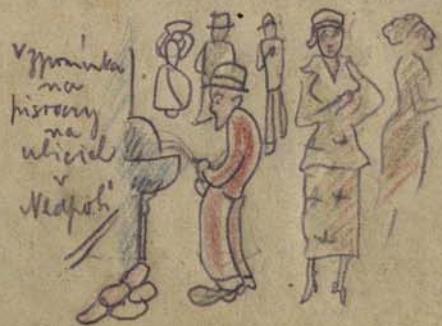 Vzpomínka
na
pisoary
na
ulicích
v
Neapoli